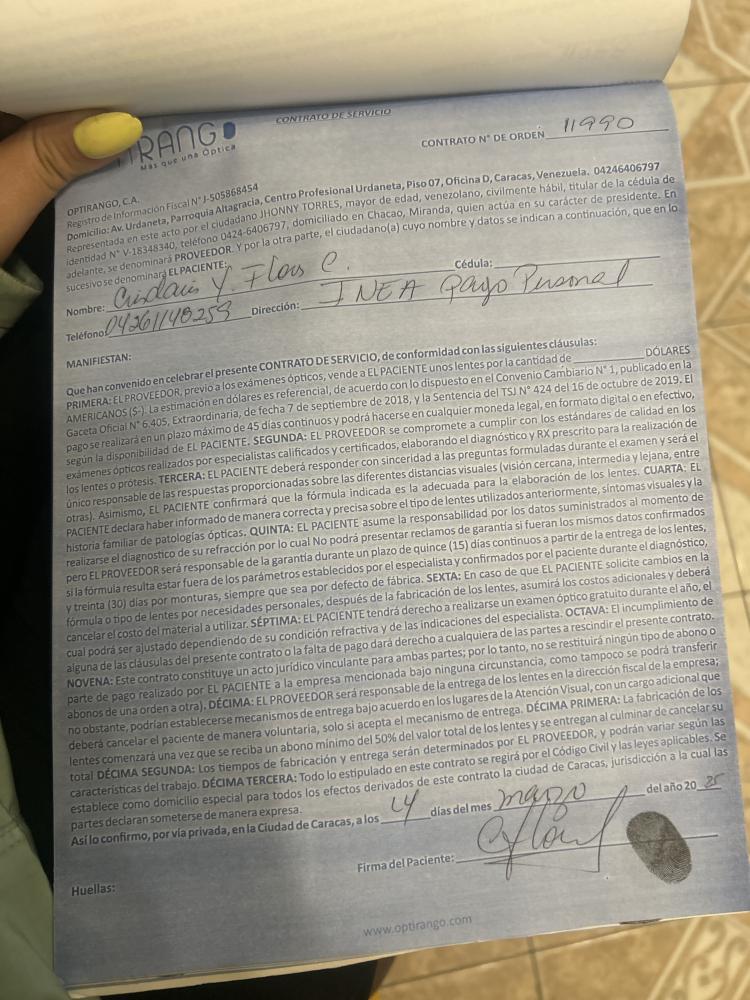 CONTRATO DE SERVICIO
TIRANGO
Más que una Óptica
CONTRATO N° DE ORDEN 11990
OPTIRANGO, C.A.
Registro de Información Fiscal N° J-505868454
Domicilio: Av. Urdaneta, Parroquia Altagracia, Centro Profesional Urdaneta, Piso 07, Oficina D, Caracas, Venezuela. 04246406797
Representada en este acto por el ciudadano JHONNY TORRES, mayor de edad, venezolano, civilmente hábil, titular de la cédula de
identidad N° V-18348340, teléfono 0424-6406797, domiciliado en Chacao, Miranda, quien actúa en su carácter de presidente. En
adelante, se denominará PROVEEDOR. Y por la otra parte, el ciudadano(a) cuyo nombre y datos se indican a continuación, que en lo
sucesivo se denominará EL PACIENTE:
Nombre: Y. Flores C. Cédula:
Teléfono: 04261148259 Dirección: INEA Pago Personal
MANIFIESTAN:
Que han convenido en celebrar el presente CONTRATO DE SERVICIO, de conformidad con las siguientes cláusulas:
PRIMERA: EL PROVEEDOR, previo a los exámenes ópticos, vende a EL PACIENTE unos lentes por la cantidad de DÓLARES
AMERICANOS ($-). La estimación en dólares es referencial, de acuerdo con lo dispuesto en el Convenio Cambiario N° 1, publicado en la
Gaceta Oficial N° 6.405, Extraordinaria, de fecha 7 de septiembre de 2018, y la Sentencia del TSJ N° 424 del 16 de octubre de 2019. El
pago se realizará en un plazo máximo de 45 días continuos y podrá hacerse en cualquier moneda legal, en formato digital o en efectivo,
según la disponibilidad de EL PACIENTE. SEGUNDA: EL PROVEEDOR se compromete a cumplir con los estándares de calidad en los
exámenes ópticos realizados por especialistas calificados y certificados, elaborando el diagnóstico y RX prescrito para la realización de
los lentes o prótesis. TERCERA: EL PACIENTE deberá responder con sinceridad a las preguntas formuladas durante el examen y será el
único responsable de las respuestas proporcionadas sobre las diferentes distancias visuales (visión cercana, intermedia y lejana, entre
otras). Asimismo, EL PACIENTE confirmará que la fórmula indicada es la adecuada para la elaboración de los lentes. CUARTA: EL
PACIENTE declara haber informado de manera correcta y precisa sobre el tipo de lentes utilizados anteriormente, síntomas visuales y la
historia familiar de patologías ópticas. QUINTA: EL PACIENTE asume la responsabilidad por los datos suministrados al momento de
realizarse el diagnostico de su refracción por lo cual No podrá presentar reclamos de garantía si fueran los mismos datos confirmados
pero EL PROVEEDOR será responsable de la garantía durante un plazo de quince (15) días continuos a partir de la entrega de los lentes,
si la fórmula resulta estar fuera de los parámetros establecidos por el especialista y confirmados por el paciente durante el diagnóstico,
y treinta (30) días por monturas, siempre que sea por defecto de fábrica. SEXTA: En caso de que EL PACIENTE solicite cambios en la
fórmula o tipo de lentes por necesidades personales, después de la fabricación de los lentes, asumirá los costos adicionales y deberá
cancelar el costo del material a utilizar. SÉPTIMA: EL PACIENTE tendrá derecho a realizarse un examen óptico gratuito durante el año, el
cual podrá ser ajustado dependiendo de su condición refractiva y de las indicaciones del especialista. OCTAVA: El incumplimiento de
alguna de las cláusulas del presente contrato o la falta de pago dará derecho a cualquiera de las partes a rescindir el presente contrato.
NOVENA: Este contrato constituye un acto jurídico vinculante para ambas partes; por lo tanto, no se restituirá ningún tipo de abono o
parte de pago realizado por EL PACIENTE a la empresa mencionada bajo ninguna circunstancia, como tampoco se podrá transferir
abonos de una orden a otra). DÉCIMA: EL PROVEEDOR será responsable de la entrega de los lentes en la dirección fiscal de la empresa;
no obstante, podrían establecerse mecanismos de entrega bajo acuerdo en los lugares de la Atención Visual, con un cargo adicional que
deberá cancelar el paciente de manera voluntaria, solo si acepta el mecanismo de entrega. DÉCIMA PRIMERA: La fabricación de los
lentes comenzará una vez que se reciba un abono mínimo del 50% del valor total de los lentes y se entregan al culminar de cancelar su
total DÉCIMA SEGUNDA: Los tiempos de fabricación y entrega serán determinados por EL PROVEEDOR, y podrán variar según las
características del trabajo. DÉCIMA TERCERA: Todo lo estipulado en este contrato se regirá por el Código Civil y las leyes aplicables. Se
establece como domicilio especial para todos los efectos derivados de este contrato la ciudad de Caracas, jurisdicción a la cual las
partes declaran someterse de manera expresa.
Así lo confirmo, por vía privada, en la Ciudad de Caracas, a los días del mes marzo del año 20 25
Firma del Paciente:
Huellas:
www.optirango.com